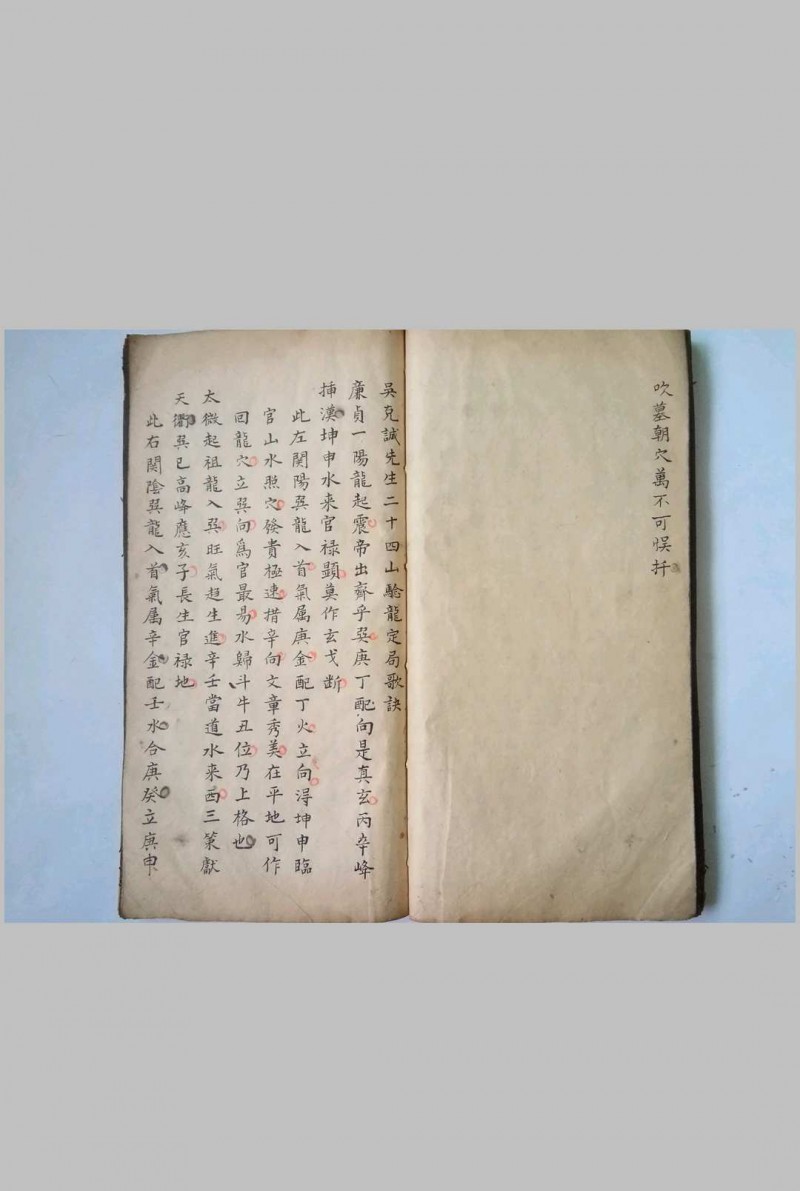 吹墓朝穴萬不可悞扦
吳克誠先生二十四山驗龍定局歌訣
廉貞一陽龍起震帝出齊乎巽庚丁配向是真玄丙辛峰
揷漢坤申水来官禄顕莫作玄戈斷
此左関陽巽龍入首氣属庚金配丁火立向淂坤申臨
官山水照穴發貴極速措辛向文章秀美在平地可作
回龍穴立巽向爲官最昜水歸斗牛丑位乃上格也
太微起祖龍入巽旺氣趋生進辛壬當道水来酉三策献
天衢巽巳高峰應亥子長生官禄地
此右関陰巽龍入首氣属辛金配壬水合庚癸立庚申